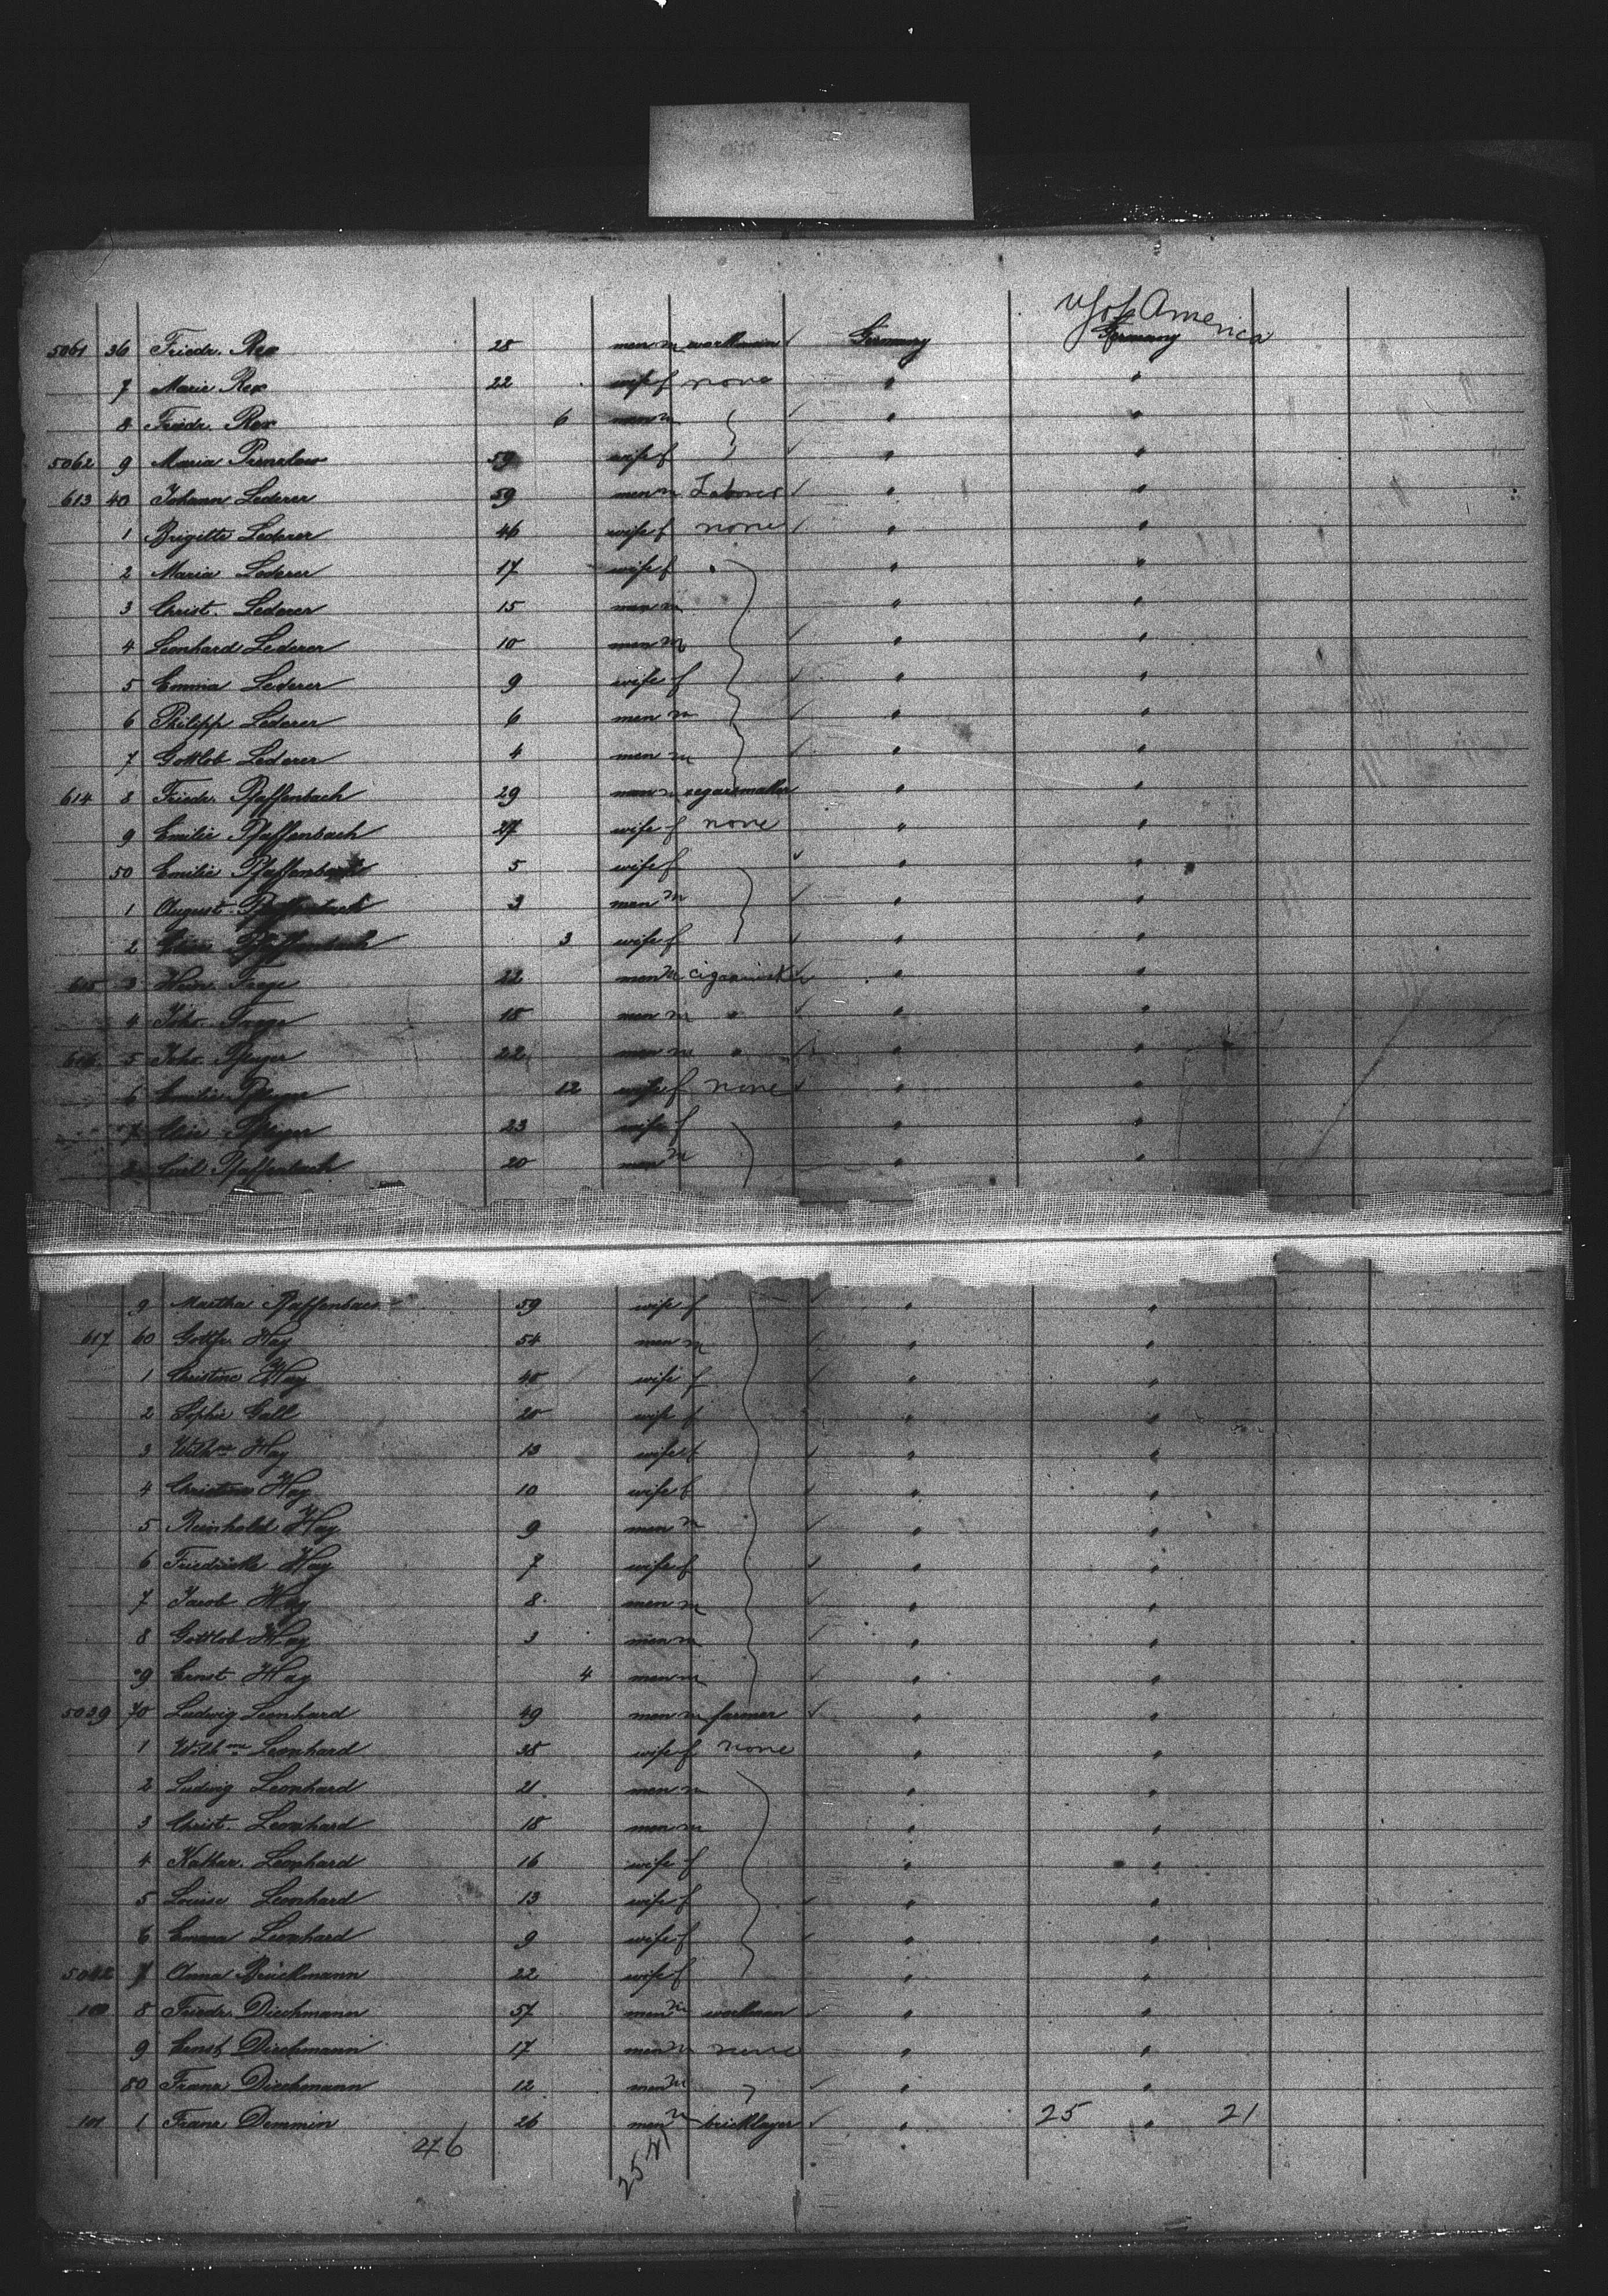 U S of America
5061 36 Friedr. Rex 28 men m workman Germany Germany
7 Marie Rex 22 wife f none " "
8 Friedr. Rex 6 men m " "
5062 9 Maria 59 wife f " "
613 40 Johann Lederer 59 men m Laborer " "
1 Brigitte Lederer 46 wife f none " "
2 Maria Lederer 17 wife f " " "
3 Christ. Lederer 15 men m " "
4 Leonhard Lederer 10 men m " "
5 Emma Lederer 9 wife f " "
6 Philipp Lederer 6 men m " "
7 Gottlob Lederer 4 men m " "
614 8 Friedr. Pfaffenbach 29 men m segarsmaker " "
9 Emilie Pfaffenbach 27 wife f none " "
50 Emilie Pfaffenbach 5 wife f " "
1 August Pfaffenbach 3 men m " "
2 Pfaffenbach 3 wife f " "
615 3 Hein. Frege 22 men m " "
4 Joh. Frege 18 men m " " "
616 5 Joh. Pfleger 22 men m " " "
6 Emilie 12 wife f none " "
7 23 wife f " "
8 Carl Pfaffenbach 20 men m " "
9 Martha Pfaffenbach 59 wife f " "
617 60 Gottfr. Hay 54 men m " "
1 Christine Hay 45 wife f " "
2 Sophie Gall 20 wife f " "
3 Wilhne Hay 13 wife f " "
4 Christine Hay 10 wife f " "
5 Reinhold Hay 9 men m " "
6 Friedricke Hay 7 wife f " "
7 Jacob Hay 8 men m " "
8 Gottlob Hay 3 men m " "
9 Ernst Hay 4 men m " "
5039 70 Ludwig Leonhard 49 men m farmer " "
1 Wilhne Leonhard 38 wife f none " "
2 Ludwig Leonhard 21 men m " "
3 Christ. Leonhard 18 men m " "
4 Kathar. Leonhard 16 wife f " "
5 Louise Leonhard 13 wife f " "
6 Emma Leonhard 9 wife f " "
5042 7 Anna Brückmann 22 wife f " "
100 8 Friedr. Dieckmann 57 men m workman " "
9 Ernst Dieckmann 17 men m none " "
80 Franz Dieckmann 12 men m " "
101 1 Franz Demmin 26 men m bricklayer " 25 " 21
46
25 21